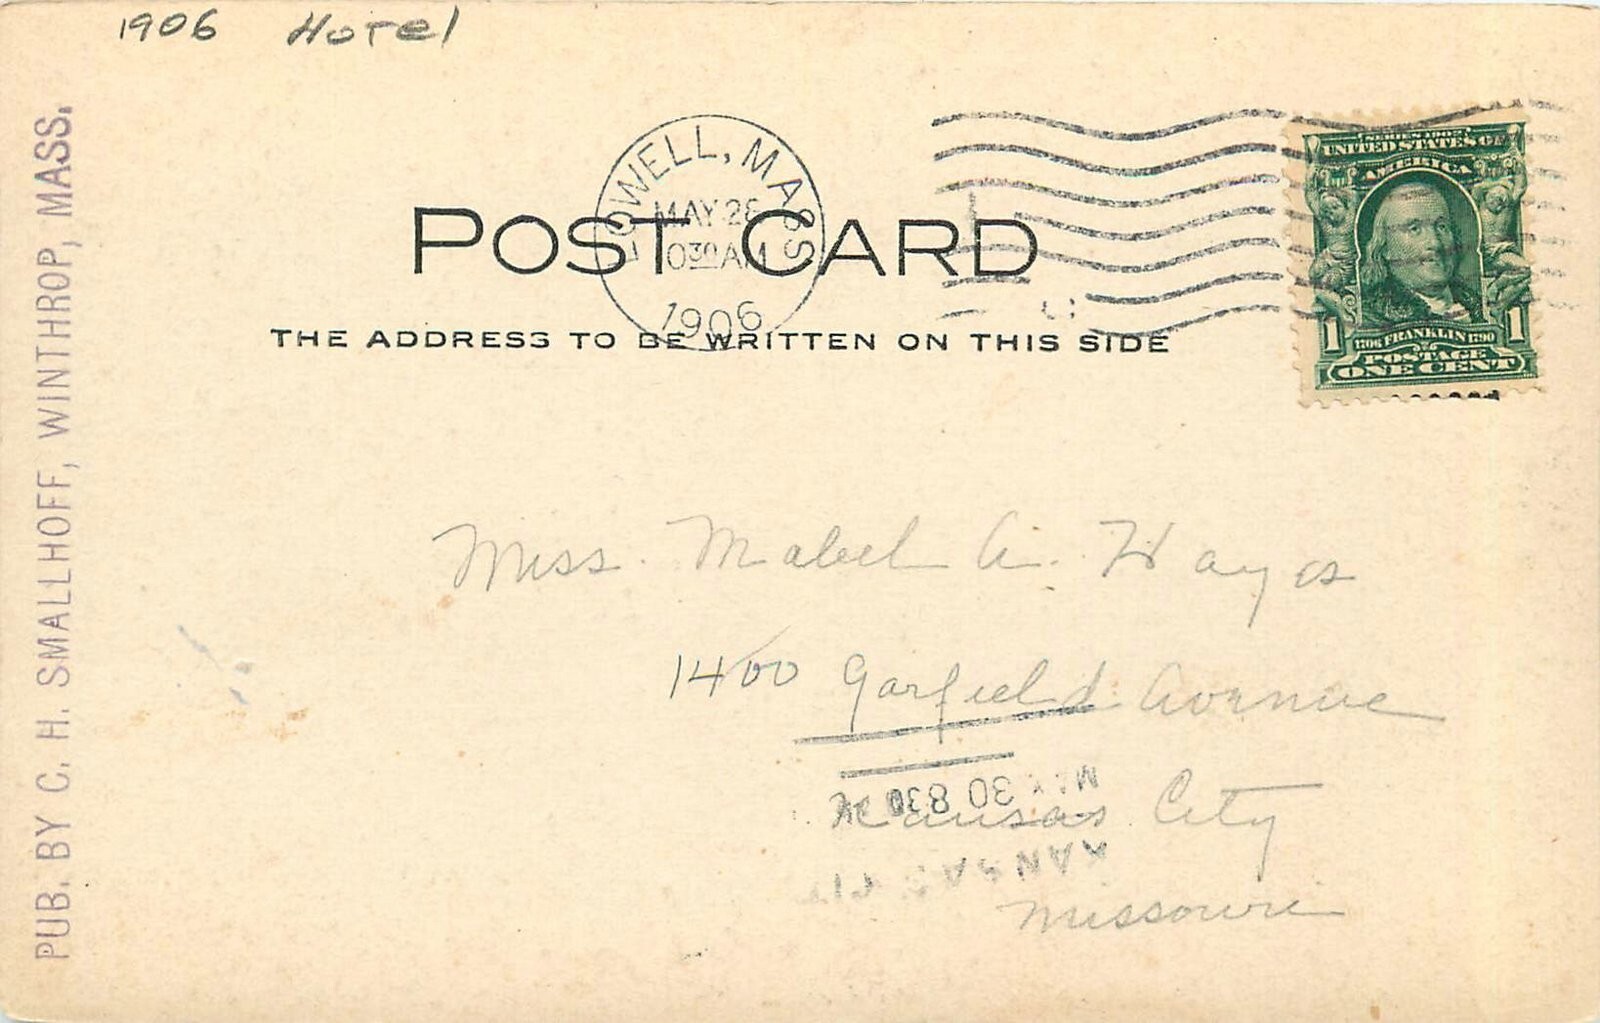 1906 Hotel
PUB. BY C. H. SMALLHOFF, WINTHROP, MASS.
LOWELL, MASS
MAY 28
1030 AM
1906
POST CARD
THE ADDRESS TO BE WRITTEN ON THIS SIDE
SERIES 1902
UNITED STATES OF
AMERICA
1706 FRANKLIN 1790
POSTAGE
1 ONE CENT 1
Miss. Mabel A. Hayes
1400 Garfield Avenue
Kansas City
Missouri
MAY 30 830
KANSAS